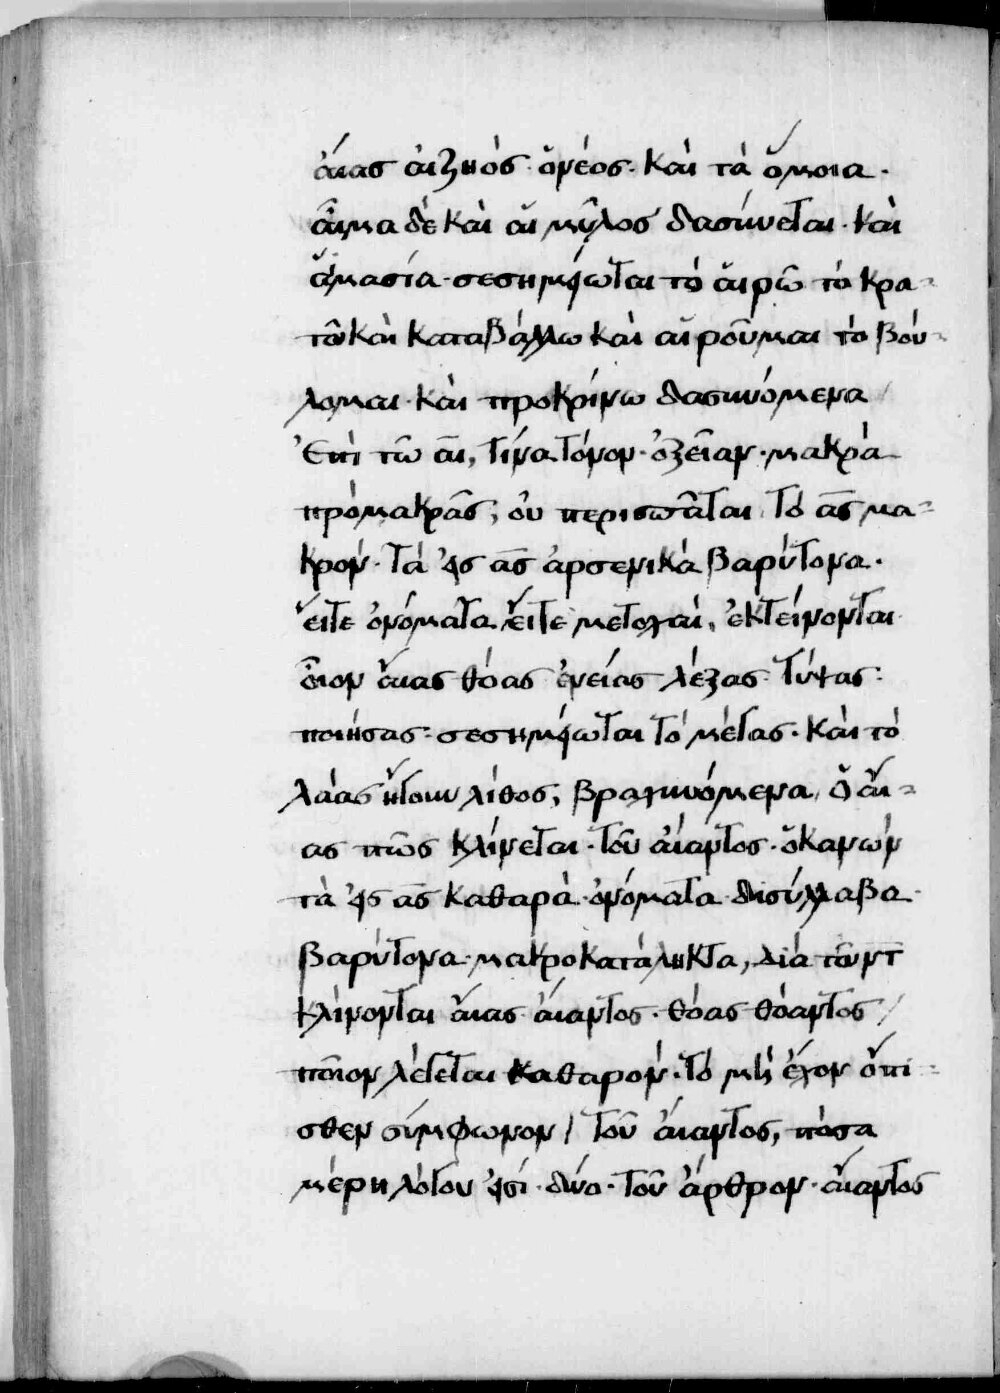 αἴας αἰζηός· ὀνέος· καὶ τὰ ὅμοια·
αἷμα δὲ καὶ αἱμύλος δασύνεται· καὶ
αἱμασία· σεσημείωται τὸ αἱρῶ τὸ κρα-
τῶ καὶ καταβάλλω καὶ αἱροῦμαι τὸ βού-
λομαι· καὶ προκρίνω δασυνόμενα /
Ἐπὶ τῶ αι, τίνα τόνον· ὀξεῖαν· μακρὰ
πρὸ μακρᾶς, οὐ περισπᾶται. Τὸ ας μα-
κρόν· Τὰ εἰς ας ἀρσενικὰ βαρύτονα·
εἴτε ὀνόματα εἴτε μετοχαὶ, ἐκτείνονται·
οἷον αἴας θόας ἐνείας λέξας· τύψας·
ποιήσας· σεσημείωται τὸ μέγας· καὶ τὸ
λάας ἤγουν λίθος, βραχυνόμενα, ὁ αἴ-
ας πῶς κλίνεται· τοῦ αἴαντος· ὁ κανών
τὰ εἰς ας καθαρὰ· ὀνόματα· δισύλλαβα·
βαρύτονα· μακροκατάληκτα, διὰ τοῦ ντ
κλίνονται αἴας αἴαντος· θόας θόαντος /
ποῖον λέγεται καθαρόν· τὸ μὴ ἔχον ὄπι-
σθεν σύμφωνον / τοῦ αἴαντος, πόσα
μέρη λόγου εἰσί· δύο· τοῦ ἄρθρον· αἴαντος